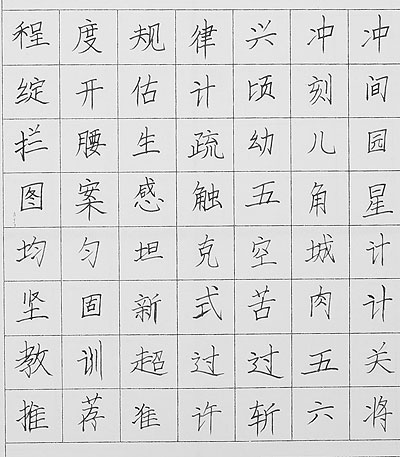 程度规律兴冲冲
绽开估计顷刻间
拦腰生疏幼儿园
图案感触五角星
均匀坦克空城计
坚固新式苦肉计
教训超过过五关
推荐准许斩六将